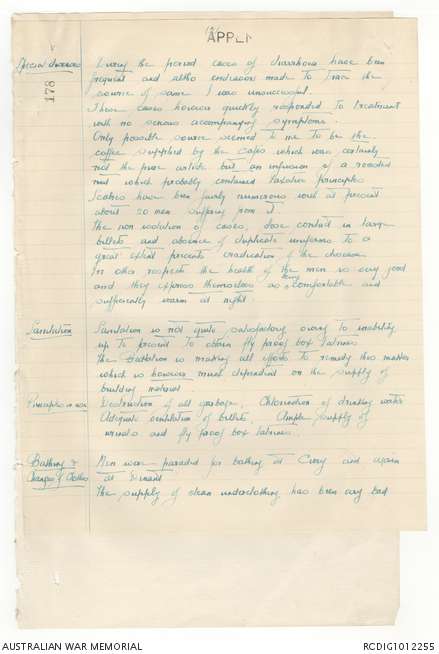 APPE
178
Special diseases During the period cases of diarrhoea have been
frequent and altho endeavour made to trace the
source of same I was unsuccessful.
These cases however quickly responded to treatment
with no serious accompanying symptoms.
Only possible source seemed to me to be the
coffee supplied by the Cafes which was certainly
not the pure article but an infusion of a roasted
nut which probably contained laxative principles
Scabies have been fairly numerous with at present
about 20 men suffering from it.
The non isolation of cases, close contact in large
billets and absence of duplicate uniforms to a
great extent prevents eradication of the disease.
In other respects the health of the men is very good
and they express themselves as being comfortable and
sufficiently warm at night.
Sanitation Sanitation is not quite satisfactory owing to inability
up to present to obtain fly proof box latrines
The Battalion is making all efforts to remedy this matter
which is however much dependent on the supply of
building material
Principles in use Destruction of all garbage. Chlorination of drinking water
Adequate ventilation of billets. Ample supply of
urinals and fly proof box latrines.
Bathing & Men were paraded for bathing at and again
Changes of Clothes at
The supply of clean underclothing has been very bad
AUSTRALIAN WAR MEMORIAL
RCDIG1012255